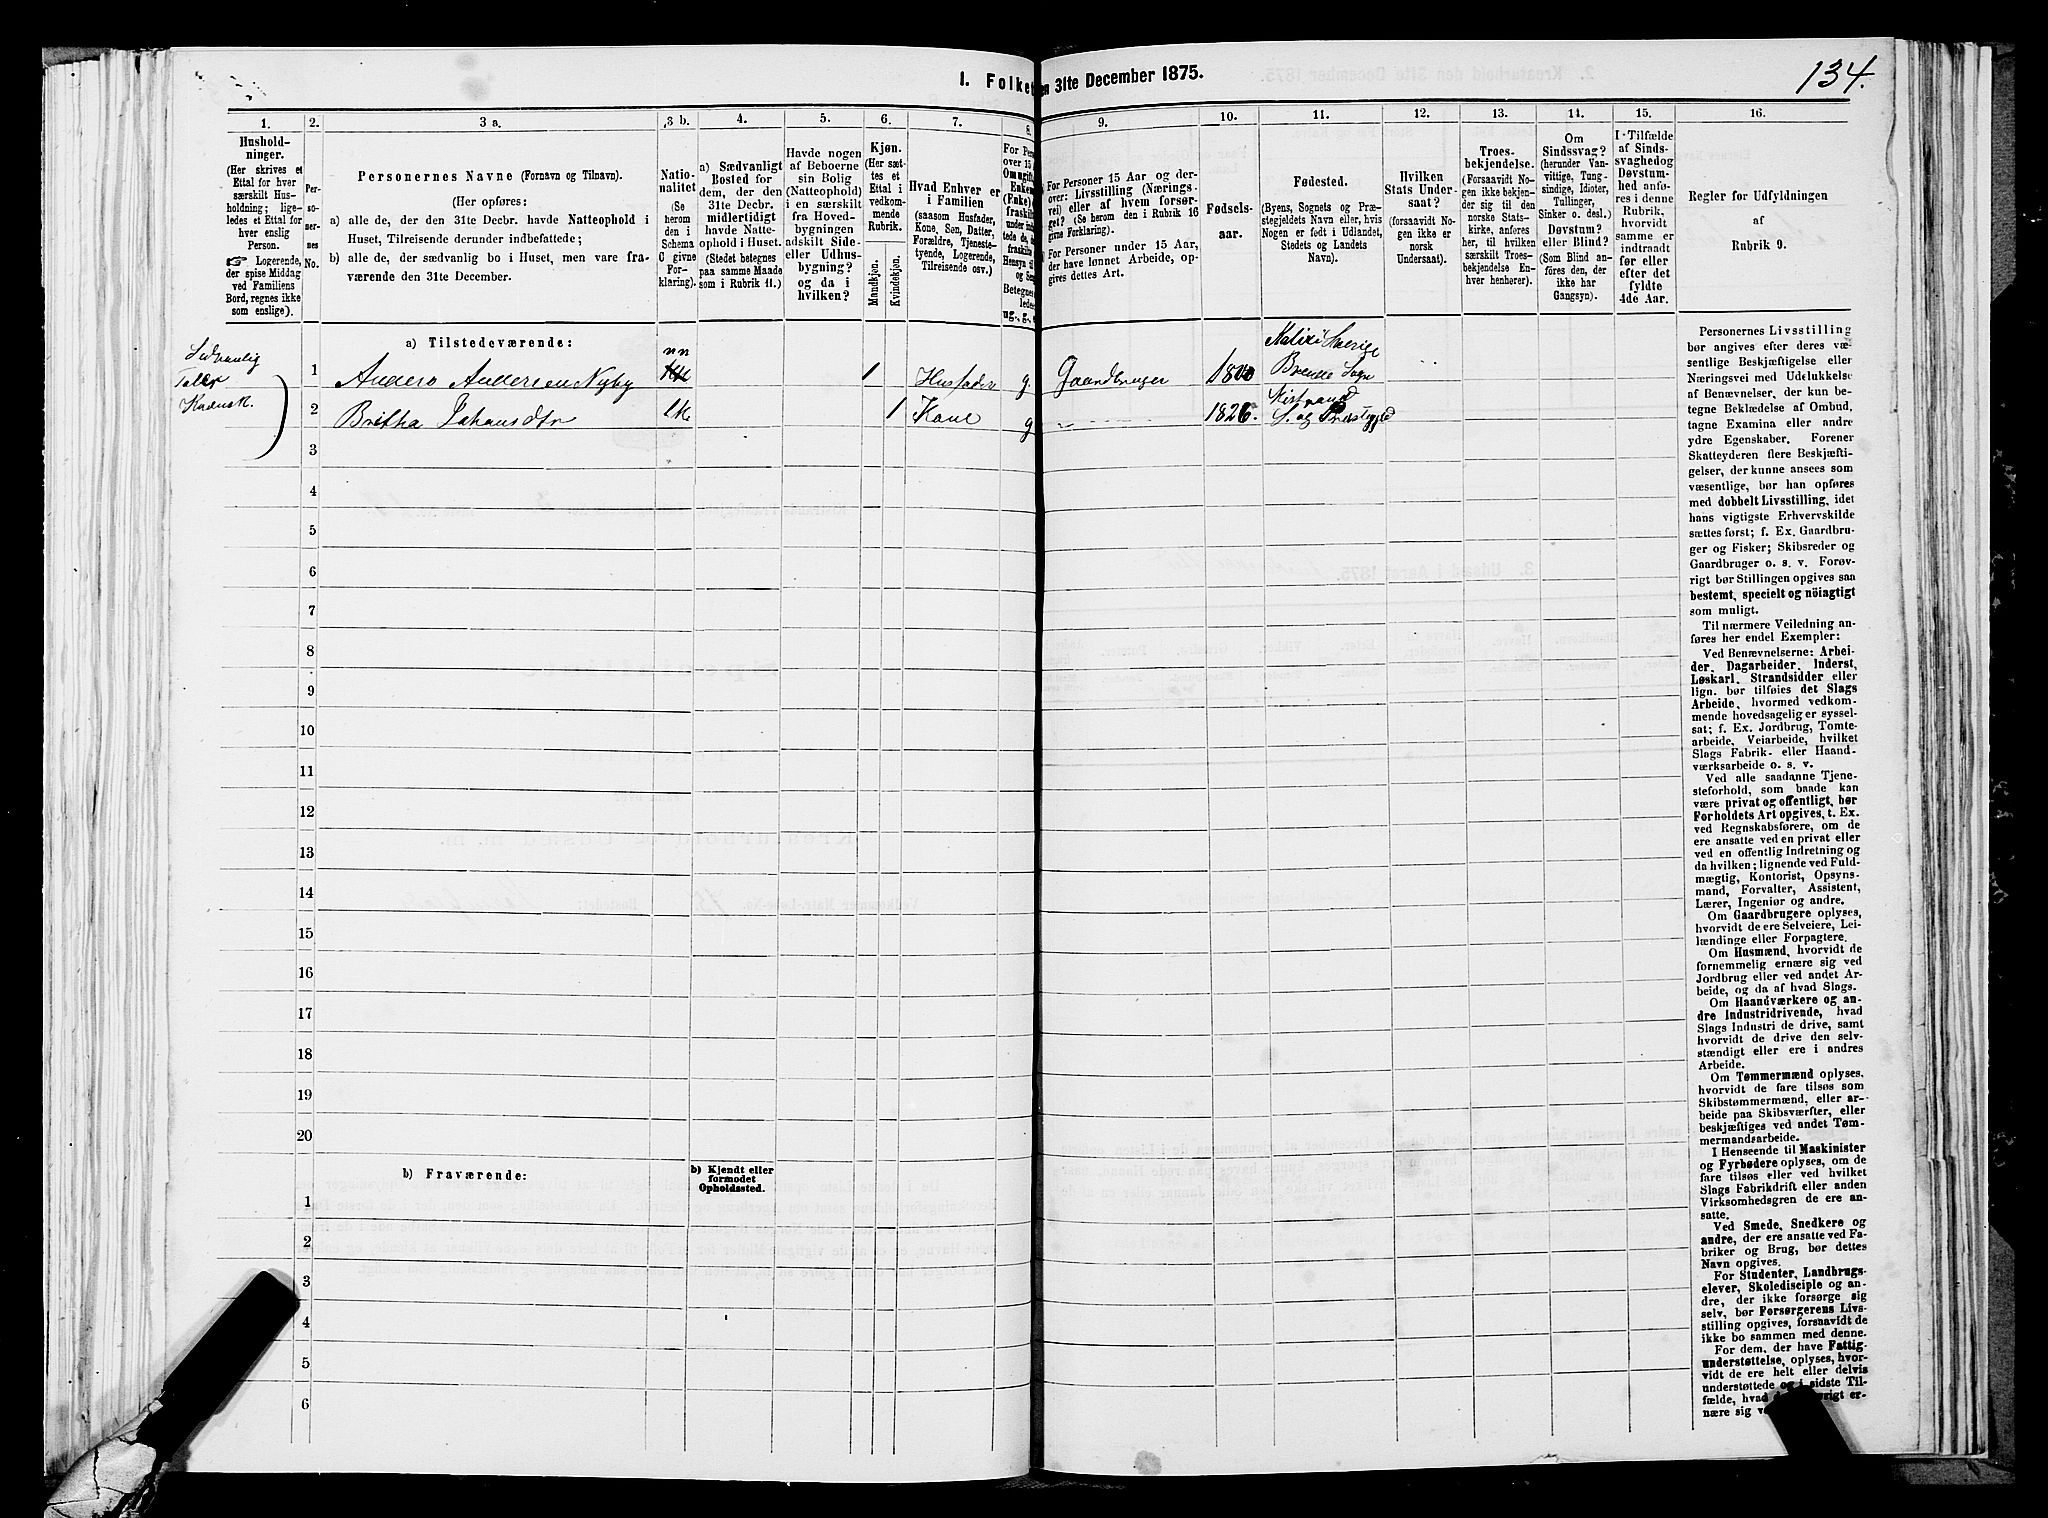 1. Folket
en 31te December 1875.
134.
1.
Hushold-
ninger.
(Her skrives et
Ettal for hver
særskilt Hus-
holdning; lige-
ledes et Ettal for
hver enslig
Person.
☞ Logerende,
der spise Middag
ved Familiens
Bord, regnes ikke
som enslige).
2.
Per-
so-
ner-
nes
No.
3 a.
Personernes Navne (Fornavn og Tilnavn).
(Her opføres:
a) alle de, der den 31te Decbr. havde Natteophold i
Huset, Tilreisende derunder indbefattede;
b) alle de, der sædvanlig bo i Huset, men vare fra-
værende den 31te December.
3 b.
Natio-
nalitet
(Se
herom
den i
Schema
C givne
For-
klaring).
4.
a) Sædvanligt
Bosted for
dem, der den
31te Decbr.
midlertidigt
havde Natte-
ophold i Huset.
(Stedet betegnes
paa samme Maade
som i Rubrik 11.)
5.
Havde nogen
af Beboerne
sin Bolig
(Natteophold)
i en særskilt
fra Hoved-
bygningen
adskilt Side-
eller Udhus-
bygning?
og da i
hvilken?
6.
Kjøn.
(Her sæt-
tes et
Ettal i
vedkom-
mende
Rubrik.
Mandkjøn.
Kvindekjøn.
7.
Hvad Enhver er
i Familien
(saasom Husfader,
Kone, Søn, Datter,
Forældre, Tjeneste-
tyende, Logerende,
Tilreisende osv.)
8.
For Pers
over 15
Om ugift,
Enke
(Enke)
fraskilt
9.
For Personer 15 Aar og der-
over: Livsstilling (Nærings-
vei) eller af hvem forsør-
get? (Se herom de i Rubrik 16
givne Forklaring).
For Personer under 15 Aar,
der have lønnet Arbeide, op-
gives dettes Art.
10.
Fødsels-
aar.
11.
Fødested.
(Byens, Sognets og Præ-
stegjeldets Navn eller, hvis
Nogen er født i Udlandet,
Stedets og Landets
Navn).
12.
Hvilken
Stats Under-
saat?
(forsaavidt No-
gen ikke er
norsk
Undersaat).
13.
Troes-
bekjendelse.
(Forsaavidt No-
gen ikke bekjen-
der sig til den
norske Stats-
kirke, anføres
her, til hvilken
særskilt Troes-
bekjendelse En-
hver henhører).
14.
Om
Sindssvag?
(herunder Van-
vittige, Tung-
sindige, Idioter,
Tullinger,
Sinker o. desl.)
Døvstum?
eller Blind?
(Som Blind an-
føres den, der
ikke har
Gangsyn).
15.
I Tilfælde
af Sinds-
svaghed og
Døvstum-
hed anfø-
res i denne
Rubrik,
hvorvidt
samme er
indtraadt
før eller
efter det
fyldte
4de Aar.
16.
Regler for Udfyldningen
af
Rubrik 9.
a) Tilstedeværende:
Sedvanlig
Taler
Kvænsk.
1 Anders Andersen Nyby nn 1 Husfader g. Gaardbruger Kalix i Sverige
2 Britha Johansdtr lK 1 Kone g 1826. Kistrand S. og Præstegjld
3
4
5
6
7
8
9
10
11
12
13
14
15
16
17
18
19
20
b) Fraværende:
b) Kjendt eller
formodet
Opholdssted.
1
2
3
4
5
6
Personernes Livsstilling
bør angives efter deres væ-
sentlige Beskjæftigelse eller
Næringsvei med Udelukkelse
af Benævnelser, der kun be-
tegne Beklædelse af Ombud,
tagne Examina eller andre
ydre Egenskaber. Forener
Skatteyderen flere Beskjæfti-
gelser, der kunne ansees som
væsentlige, bør han opføres
med dobbelt Livsstilling, idet
hans vigtigste Erhvervskilde
sættes først; f. Ex. Gaardbru-
ger og Fisker; Skibsreder og
Gaardbruger o. s. v. Forøv-
rigt bør Stillingen opgives saa
bestemt, specielt og nöiagtigt
som muligt.
Til nærmere Veiledning an-
føres her endel Exempler:
Ved Benævnelserne: Arbei-
der, Dagarbeider, Inderst,
Løskarl, Strandsidder eller
lign. bør tilføies det Slags
Arbeide, hvormed vedkom-
mende hovedsagelig er syssel-
sat; f. Ex. Jordbrug, Tomte-
arbeide, Veiarbeide, hvilket
Slags Fabrik- eller Haand-
værksarbeide o. s. v.
Ved alle saadanne Tjene-
steforhold, som baade kan
være privat og offentligt, bør
Forholdets Art opgives, t. Ex.
ved Regnskabsførere, om de
ere ansatte ved en privat eller
ved en offentlig Indretning og
da hvilken; lignende ved Fuld-
mægtig, Kontorist, Opsyns-
mand, Forvalter, Assistent,
Lærer, Ingeniør og andre.
Om Gaardbrugere oplyses,
hvorvidt de ere Selveiere, Lei-
lændinge eller Forpagtere.
Om Husmænd, hvorvidt de
fornemmelig ernære sig ved
Jordbrug eller ved andet Ar-
beide, og da af hvad Slags.
Om Haandværkere og an-
dre Industridrivende, hvad
Slags Industri de drive, samt
hvorvidt de drive den selv-
stændigt eller ere i andres
Arbeide.
Om Tømmermænd oplyses,
hvorvidt de fare tilsøs som
Skibstømmermænd, eller ar-
beide paa Skibsværfter, eller
beskjæftiges ved andet Tøm-
mermandsarbeide.
I Henseende til Maskinister
og Fyrbødere oplyses, om de
fare tilsøs eller ved hvilket
Slags Fabrikdrift eller anden
Virksomhedsgren de ere an-
satte.
Ved Smede, Snedkere og
andre, der ere ansatte ved Fa-
briker og Brug, bør dettes
Navn opgives.
For Studenter, Landbrugs-
elever, Skoledisciple og an-
dre, der ikke forsørge sig
selv, bør Forsørgerens Livs-
stilling opgives, forsaavidt de
ikke bo sammen med denne.
For dem, der have Fattig-
understøttelse, oplyses, hvor-
vidt de ere helt eller delvis
understøttede og i sidste Til-
fælde, hvad
nære sig